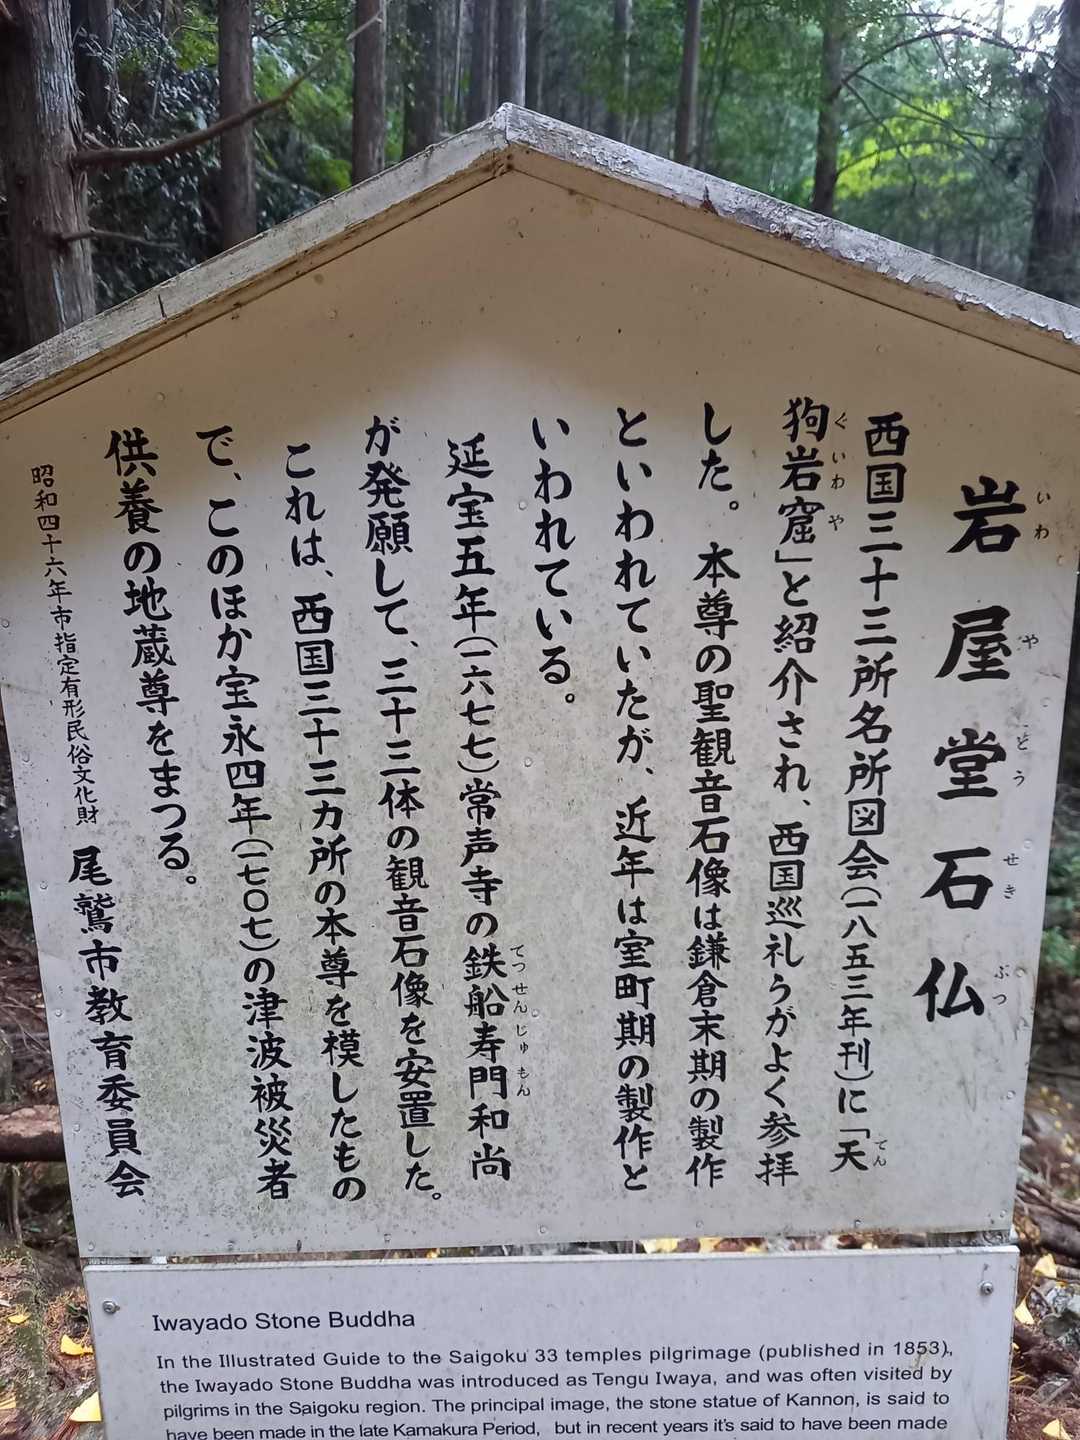 岩屋堂石仏
いわ や どう せき ぶつ
西国三十三所名所図会(一八五三年刊)に「天
てん
狗岩窟」と紹介され、西国巡礼うがよく参拝
ぐいわや
した。本尊の聖観音石像は鎌倉末期の製作
といわれていたが、近年は室町期の製作と
いわれている。
延宝五年(一六七七)常声寺の鉄船寿門和尚
てつせんじゅもん
が発願して、三十三体の観音石像を安置した。
これは、西国三十三カ所の本尊を模したもの
で、このほか宝永四年(一七〇七)の津波被災者
供養の地蔵尊をまつる。
昭和四十六年市指定有形民俗文化財 尾鷲市教育委員会
Iwayado Stone Buddha
In the Illustrated Guide to the Saigoku 33 temples pilgrimage (published in 1853),
the Iwayado Stone Buddha was introduced as Tengu Iwaya, and was often visited by
pilgrims in the Saigoku region. The principal image, the stone statue of Kannon, is said to
have been made in the late Kamakura Period, but in recent years it's said to have been made